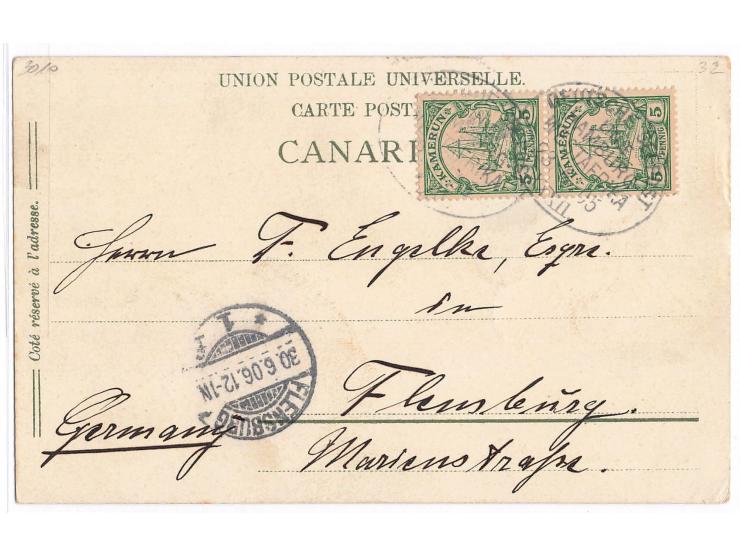 3010
32
UNION POSTALE UNIVERSELLE.
CARTE POST
CANARI
KAMERUN
5
5
PFENNIG
KAMERUN
5
5
PFENNIG
Coté réservé à l'adresse.
Herrn F. Engelke, Esqre.
in
1
30.6.06.12-1N
FLENSBURG
Flensburg.
Germany
Marienstraße.